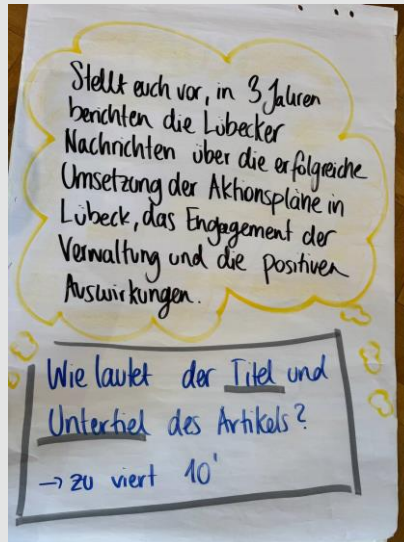 Stellt euch vor, in 3 Jahren
berichten die Lübecker
Nachrichten über die erfolgreiche
Umsetzung der Aktionspläne in
Lübeck, das Engagement der
Verwaltung und die positiven
Auswirkungen.
Wie lautet der Titel und
Untertiel des Artikels?
→ zu viert 10'